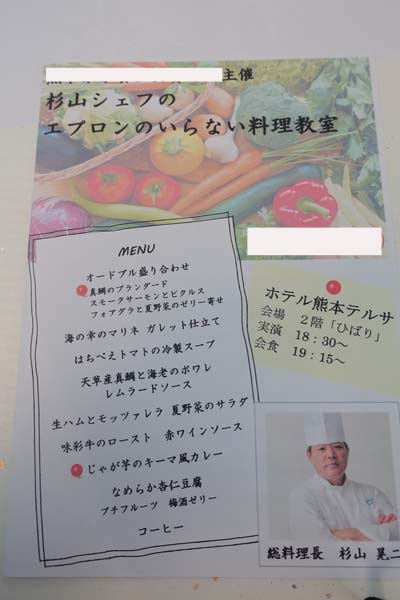 主催
杉山シェフの
エプロンのいらない料理教室
MENU
オードブル盛り合わせ
真鯛のブランダード
スモークサーモンとピクルス
フォアグラと夏野菜のゼリー寄せ
海の幸のマリネ ガレット仕立て
はちべえトマトの冷製スープ
天草産真鯛と海老のポワレ
レムラードソース
生ハムとモッツァレラ 夏野菜のサラダ
味彩牛のロースト 赤ワインソース
じゃが芋のキーマ風カレー
なめらか杏仁豆腐
プチフルーツ 梅酒ゼリー
コーヒー
ホテル熊本テルサ
会場 2階「ひばり」
実演 18:30～
会食 19:15～
総料理長 杉山 晃二